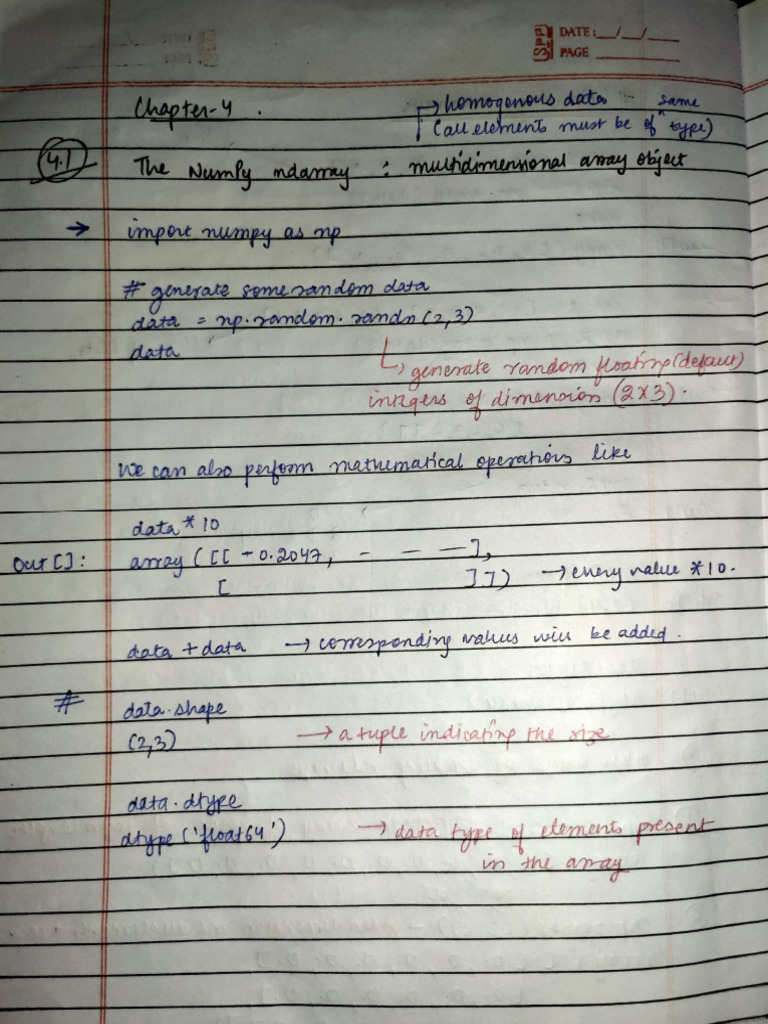 SPP DATE: __/__/__
PAGE
Chapter-4 .
→ homogenous data - same
(all elements must be of ^ type)
4.1 The NumPy ndarray : multidimensional array object
→ import numpy as np
# generate some random data
data = np.random.randn(2,3)
data
↳ generate random floating (default)
integers of dimension (2x3).
We can also perform mathematical operations like
data * 10
Out[]: array([[ -0.2047, - - —],
[ ]]) → every value *10.
data + data → corresponding values will be added.
# data.shape
(2,3) → a tuple indicating the size
data.dtype
dtype('float64') → data type of elements present
in the array